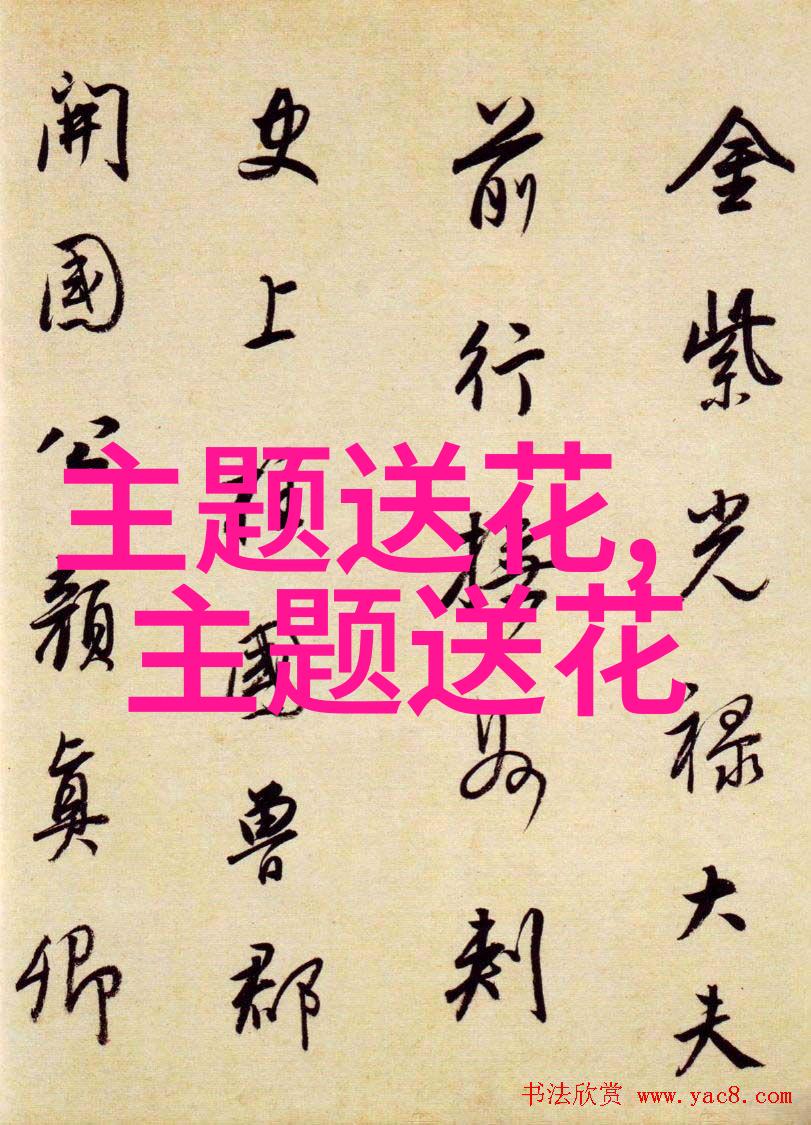 金紫光禄大夫
前行撫州刺
史上柱國魯郡
開國公顏真卿
主题送花,
主题送花
书法欣赏 www.yac8.com